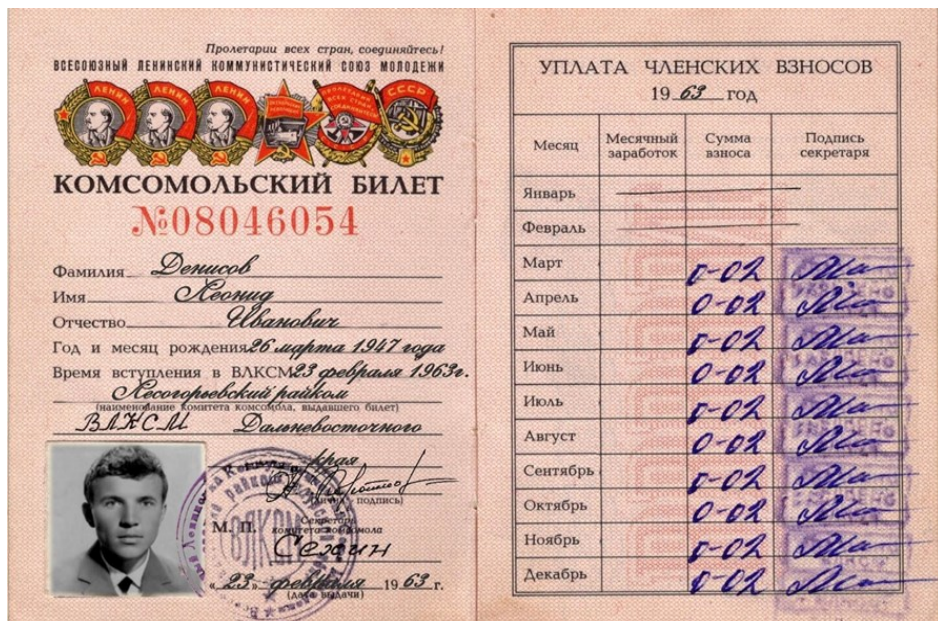 Пролетарии всех стран, соединяйтесь!
ВСЕСОЮЗНЫЙ ЛЕНИНСКИЙ КОММУНИСТИЧЕСКИЙ СОЮЗ МОЛОДЕЖИ
ЛЕНИН ЛЕНИН ЛЕНИН СССР
КОМСОМОЛЬСКИЙ БИЛЕТ
№08046054
Фамилия Денисов
Имя Леонид
Отчество Иванович
Год и месяц рождения 26 марта 1947 года
Время вступления в ВЛКСМ 23 февраля 1963г.
Лесогорьевский райком
(наименование комитета комсомола, выдавшего билет)
ВЛКСМ Дальневосточного
края
(личная подпись)
М. П. Секретарь
комитета комсомола
«23» февраля 1963 г.
(дата выдачи)
УПЛАТА ЧЛЕНСКИХ ВЗНОСОВ
1963 год
Месяц Месячный заработок Сумма взноса Подпись секретаря
Январь
Февраль
Март 0-02
Апрель 0-02
Май 0-02
Июнь 0-02
Июль 0-02
Август 0-02
Сентябрь 0-02
Октябрь 0-02
Ноябрь 0-02
Декабрь 0-02